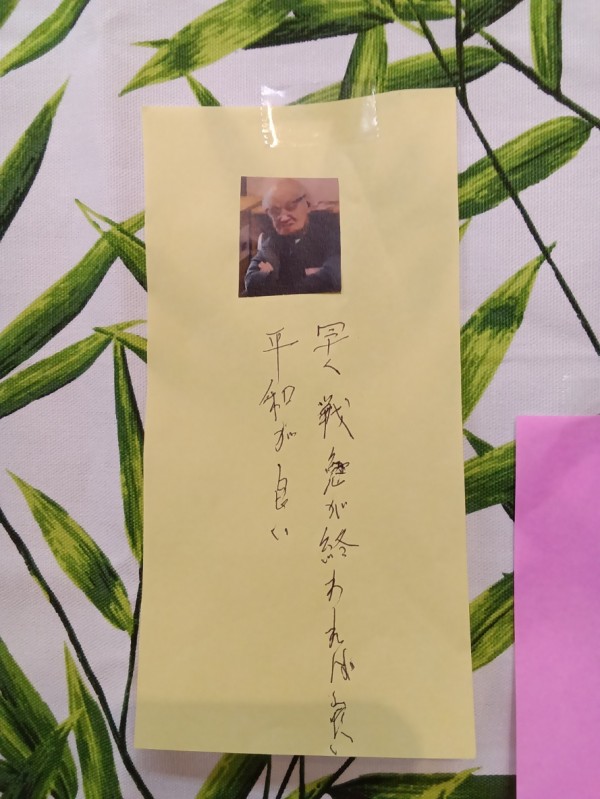 早く戦争が終われば良い
平和が良い